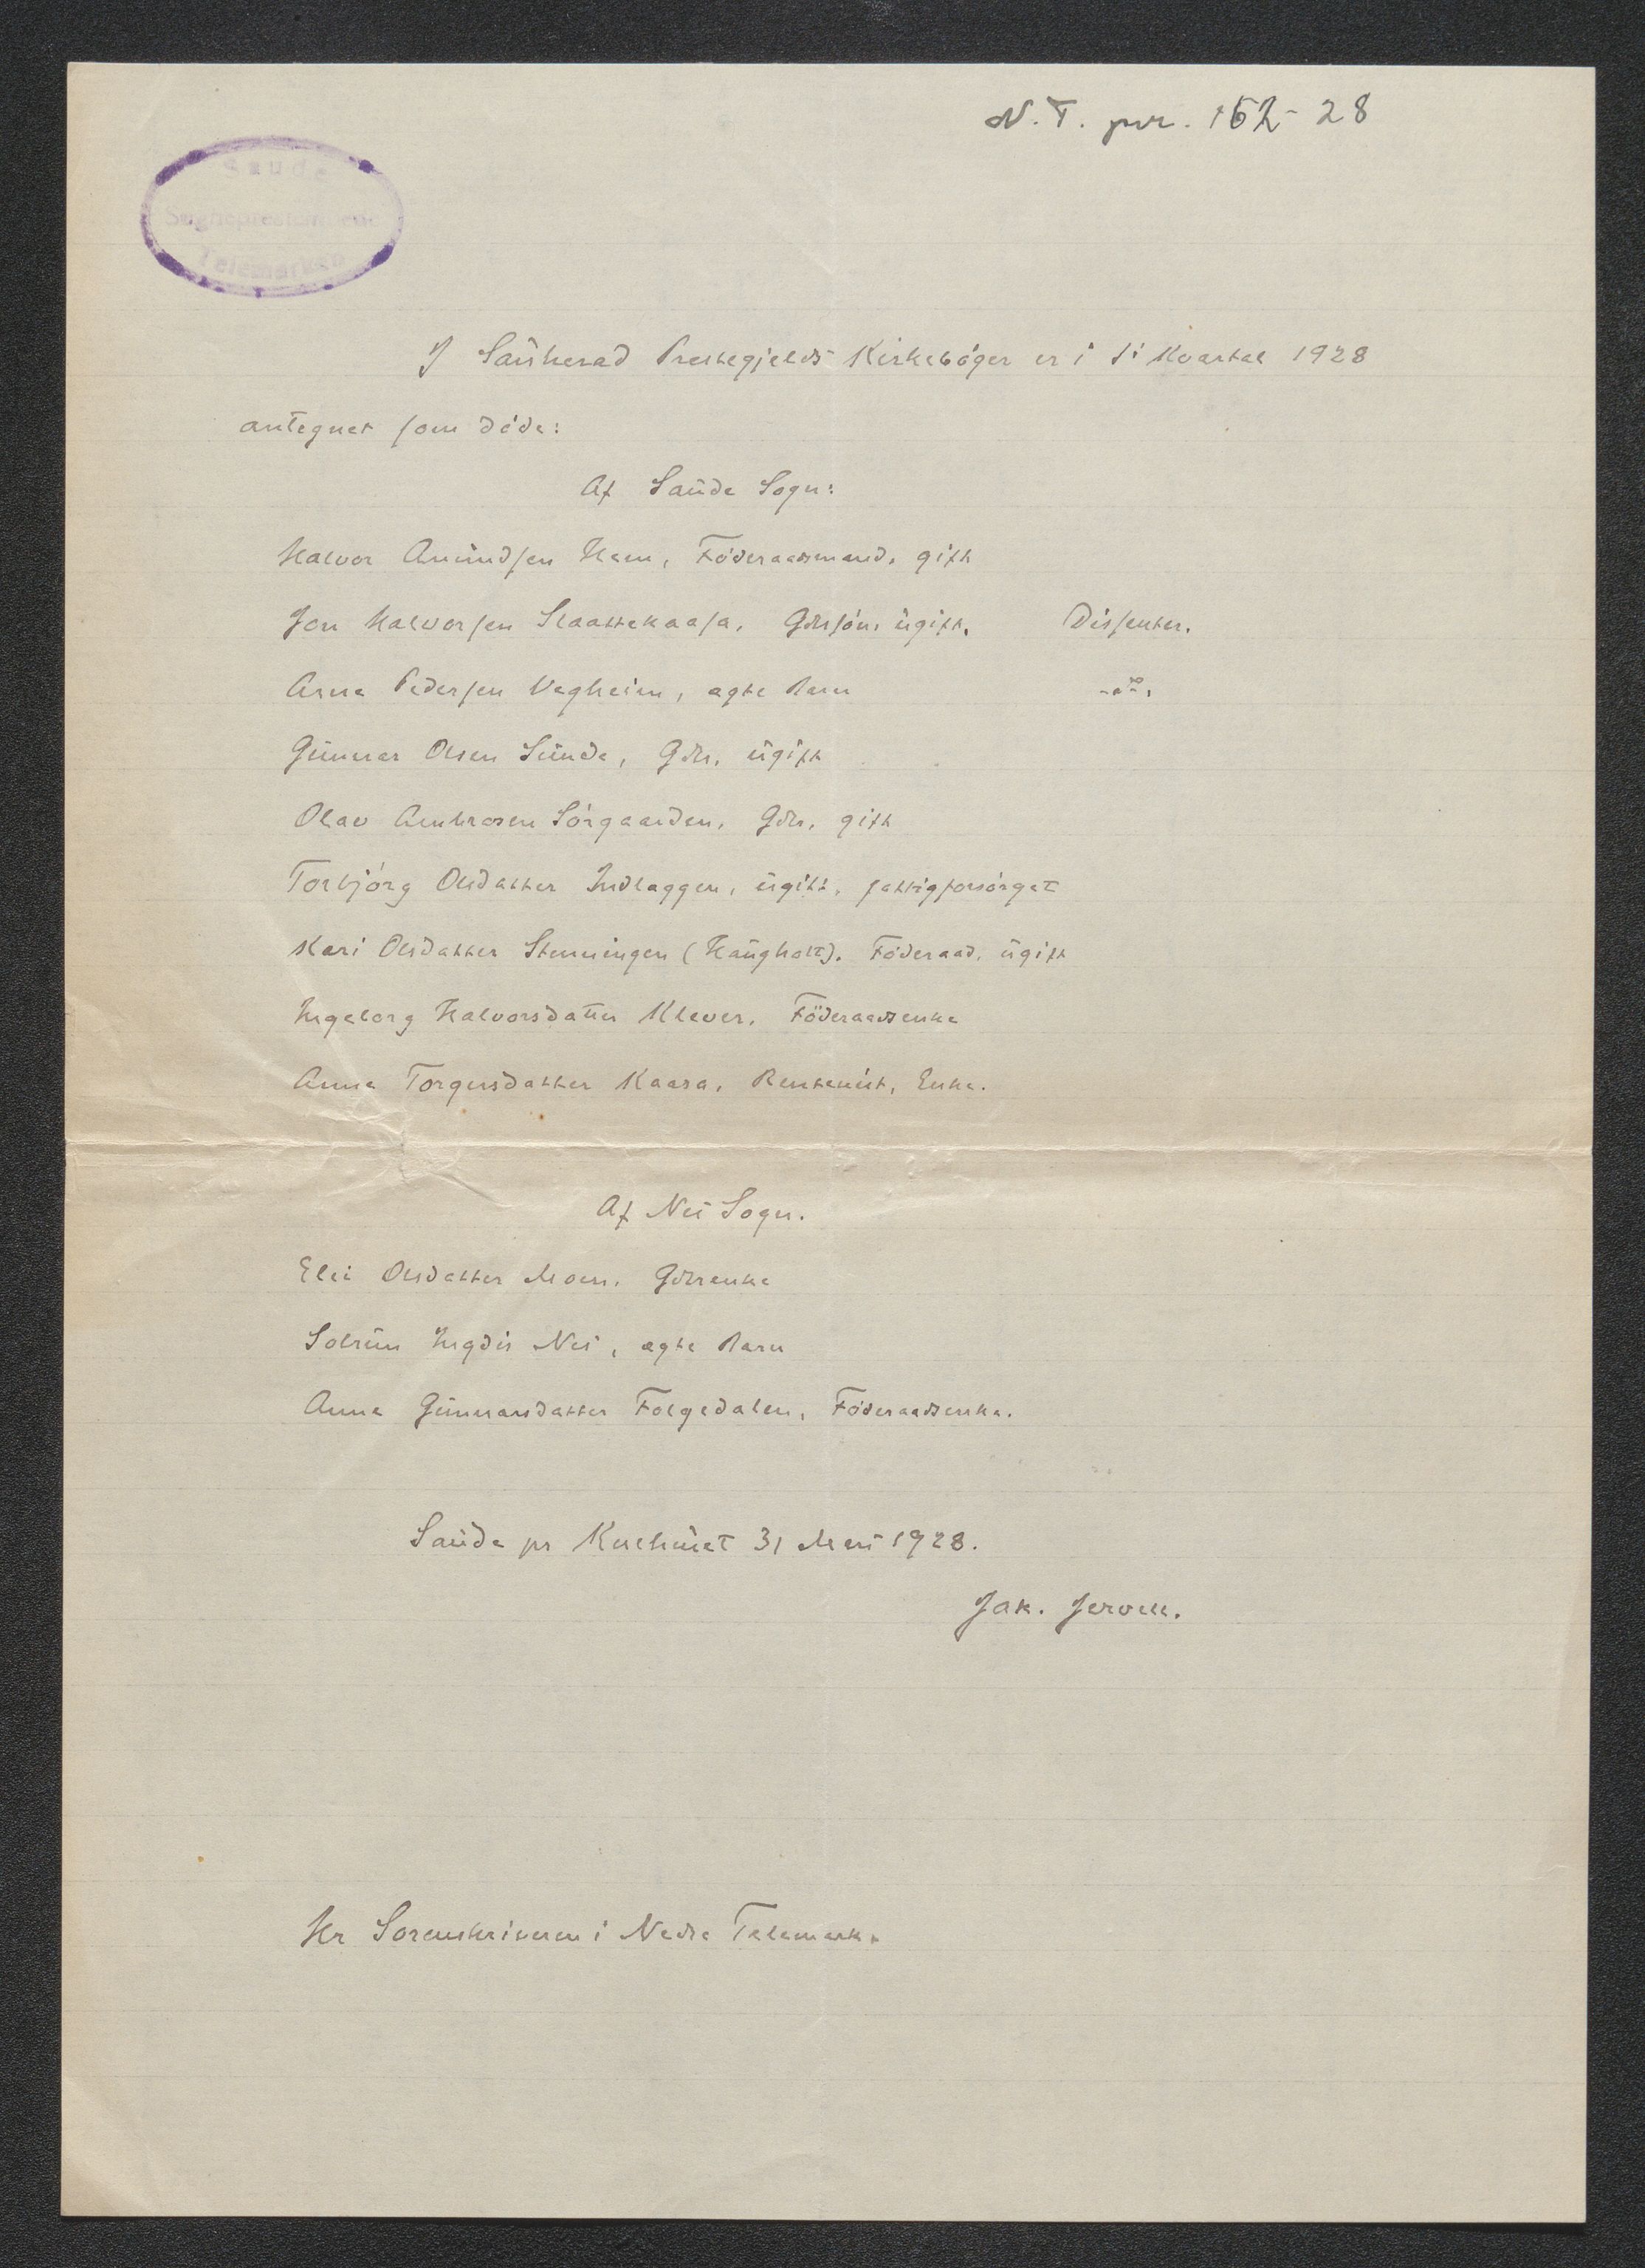 N.T. pvr. 152 - 28
Saude
Sogneprestembede
Telemarken
I Sauherad Prestegjelds Kirkebøger er i 1ste Kvartal 1928
antegnet som døde:
Af Saude Sogn:
Halvor Amundsen Hem, Føderaadsmand, gift
Jon Halvorsen Slaattekaasa, Gdbrsøn, ugift. Dissenter.
Arne Pedersen Vegheim, ægte Barn -"-.
Gunnar Olsen Sunde, Gdbr. ugift
Olav Ambrosen Sørgaarden, Gdbr. gift
Torbjørg Olsdatter Indlaggen, ugift, fattigforsørget
Kari Olsdatter Stenningen (Haugholt). Føderaad, ugift
Ingeborg Halvorsdatter Klever, Føderaadsenke
Anne Torgersdatter Kaasa, Rentenist, Enke.
Af Nes Sogn.
Elei Olsdatter Moen, Gdbrenke
Solrun Ingdis Nes, ægte Barn
Anne Gunnarsdatter Folgedalen, Føderaadsenke.
Saude pr 31 Mars 1928.
Jak. Jervell.
Hr Sorenskriveren i Nedre Telemark.